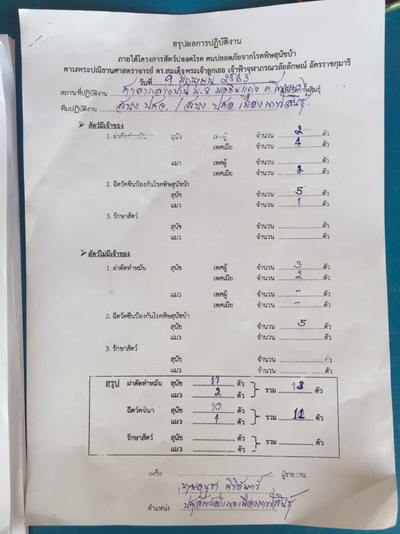 สรุปผลการปฏิบัติงาน
ภายใต้โครงการสัตว์ปลอดโรค คนปลอดภัยจากโรคพิษสุนัขบ้า
ตามพระปณิธานศาสตราจารย์ ดร.สมเด็จพระเจ้าลูกเธอ เจ้าฟ้าจุฬาภรณวลัยลักษณ์ อัครราชกุมารี
วันที่ 9 2563
สถานที่ปฏิบัติงาน ศาลากลางบ้าน ม.8
ทีมปฏิบัติงาน
➤ สัตว์มีเจ้าของ
1. ผ่าตัดทำหมัน สุนัข เพศผู้ จำนวน 2 ตัว
เพศเมีย จำนวน 4 ตัว
แมว เพศผู้ จำนวน ตัว
เพศเมีย จำนวน 2 ตัว
2. ฉีดวัคซีนป้องกันโรคพิษสุนัขบ้า สุนัข จำนวน 5 ตัว
แมว จำนวน 1 ตัว
3. รักษาสัตว์ สุนัข จำนวน ตัว
แมว จำนวน ตัว
➤ สัตว์ไม่มีเจ้าของ
1. ผ่าตัดทำหมัน สุนัข เพศผู้ จำนวน 3 ตัว
เพศเมีย จำนวน 2 ตัว
แมว เพศผู้ จำนวน - ตัว
เพศเมีย จำนวน - ตัว
2. ฉีดวัคซีนป้องกันโรคพิษสุนัขบ้า สุนัข จำนวน 5 ตัว
แมว จำนวน ตัว
3. รักษาสัตว์ สุนัข จำนวน ตัว
แมว จำนวน ตัว
สรุป ผ่าตัดทำหมัน สุนัข 11 ตัว รวม 13 ตัว
แมว 2 ตัว
ฉีดวัคซีน สุนัข 10 ตัว รวม 11 ตัว
แมว 1 ตัว
รักษาสัตว์ สุนัข ตัว รวม ตัว
แมว ตัว
ลงชื่อ ผู้รายงาน
ตำแหน่ง